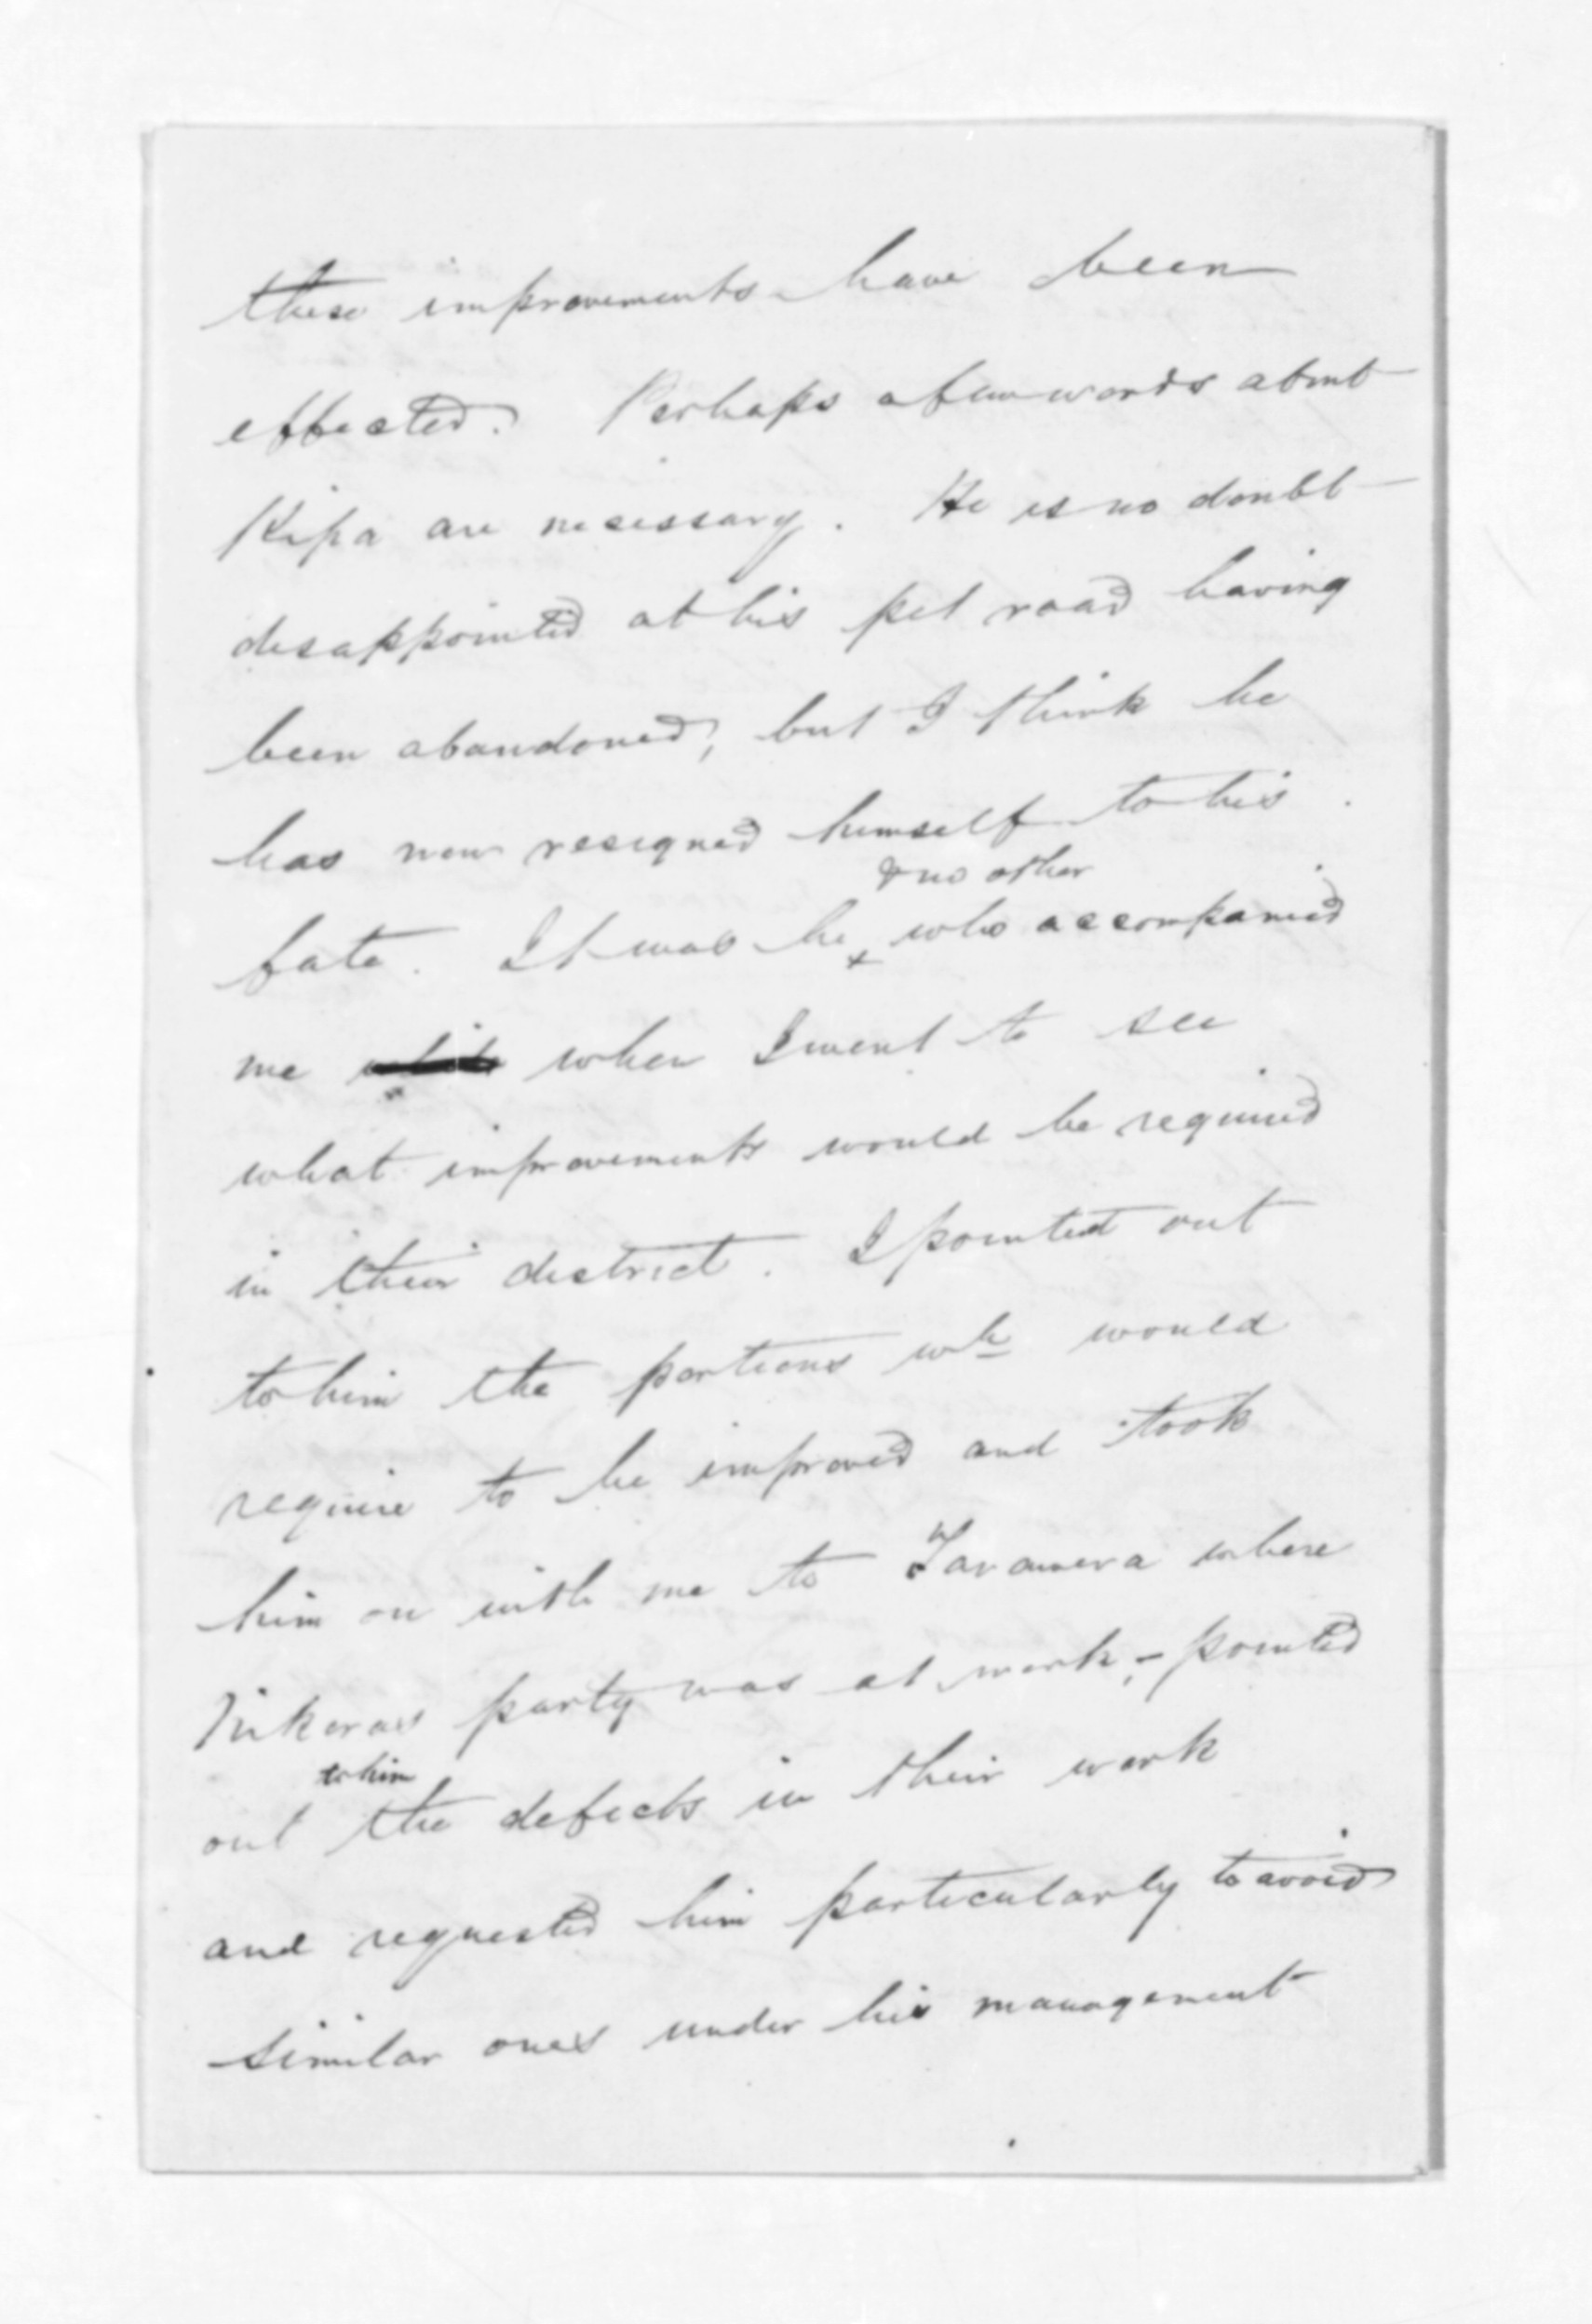 these improvements have been
effected. Perhaps a few words about
Kipa are necessary. He is no doubt
disappointed at his pet road having
been abandoned, but I think he
has now resigned himself to his
& no other
fate. It was he who accompanied
me when I went to see
what improvements would be required
in their district. I pointed out
to him the portions wh would
require to be improved and took
him on with me to Tarawera where
party was at work, - pointed
to him
out the defects in their work
and requested him particularly to avoid
similar ones under his management